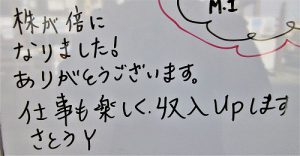 M.I
株が倍に
なりました!
ありがとうございます。
仕事も楽しく、収入upします
さとうY